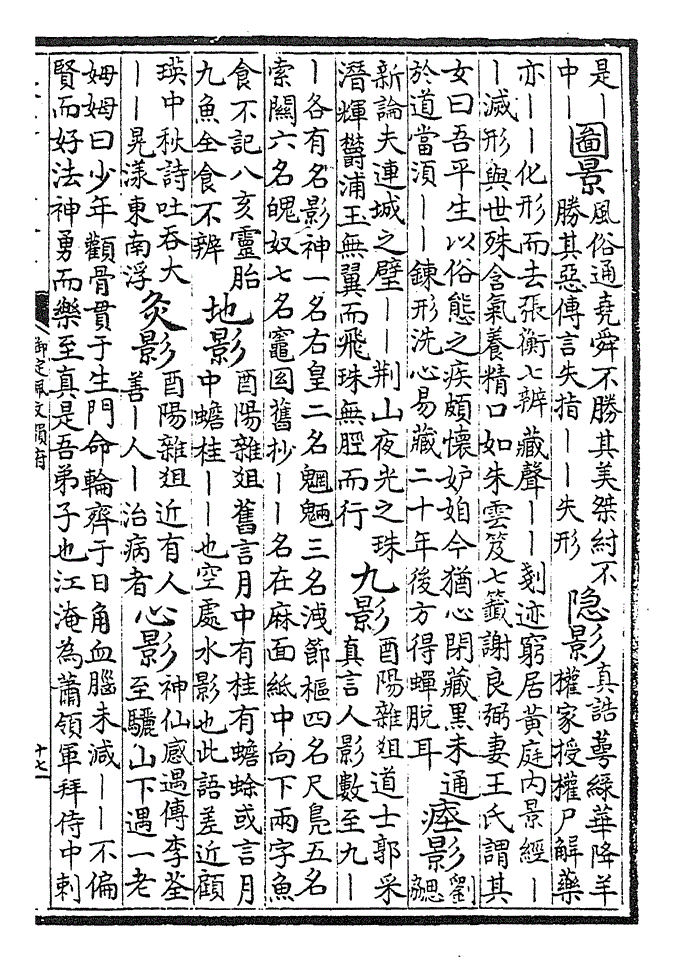 是｜
中｜
圖景
風俗通堯舜不勝其美桀紂不
勝其惡傳言失指｜｜失形
隐影
真誥萼綠華降羊
權家授權尸解藥
亦｜｜化形而去張衡七辨藏聲｜｜剗迹窮居黃庭内景經｜
｜滅形與世殊含氣養精口如朱雲笈七籤謝良弼妻王氏謂其
女曰吾平生以俗態之疾頗懷妒媢今猶心閉藏黑未通
於道當須｜｜鍊形洗心易藏二十年後方得蟬脫耳
瘞影
劉
勰
新論夫連城之璧｜｜荆山夜光之珠
潛輝鬱浦玉無翼而飛珠無脛而行
九影
酉陽雜俎道士郭采
真言人影數至九｜
｜各有名影神一名右皇二名魍魎三名洩節樞四名尺鳧五名
索關六名魄奴七名竈囦舊抄｜｜名在麻面紙中向下兩字魚
食不記八亥靈胎
九魚全食不辨
地影
酉陽雜俎舊言月中有桂有蟾蜍或言月
中蟾桂｜｜也空處水影也此語差近顧
瑛中秋詩吐吞大
｜｜晃漾東南浮
灸影
酉陽雜俎近有人
善｜人｜治病者
心影
神仙感遇傳李荃
至驪山下遇一老
姆姆曰少年顴骨貫于生門命輪齊于日角血腦未減｜｜不偏
賢而好法神勇而樂至真是吾弟子也江淹為蕭領軍拜侍中刺
御定佩文韻府
十七